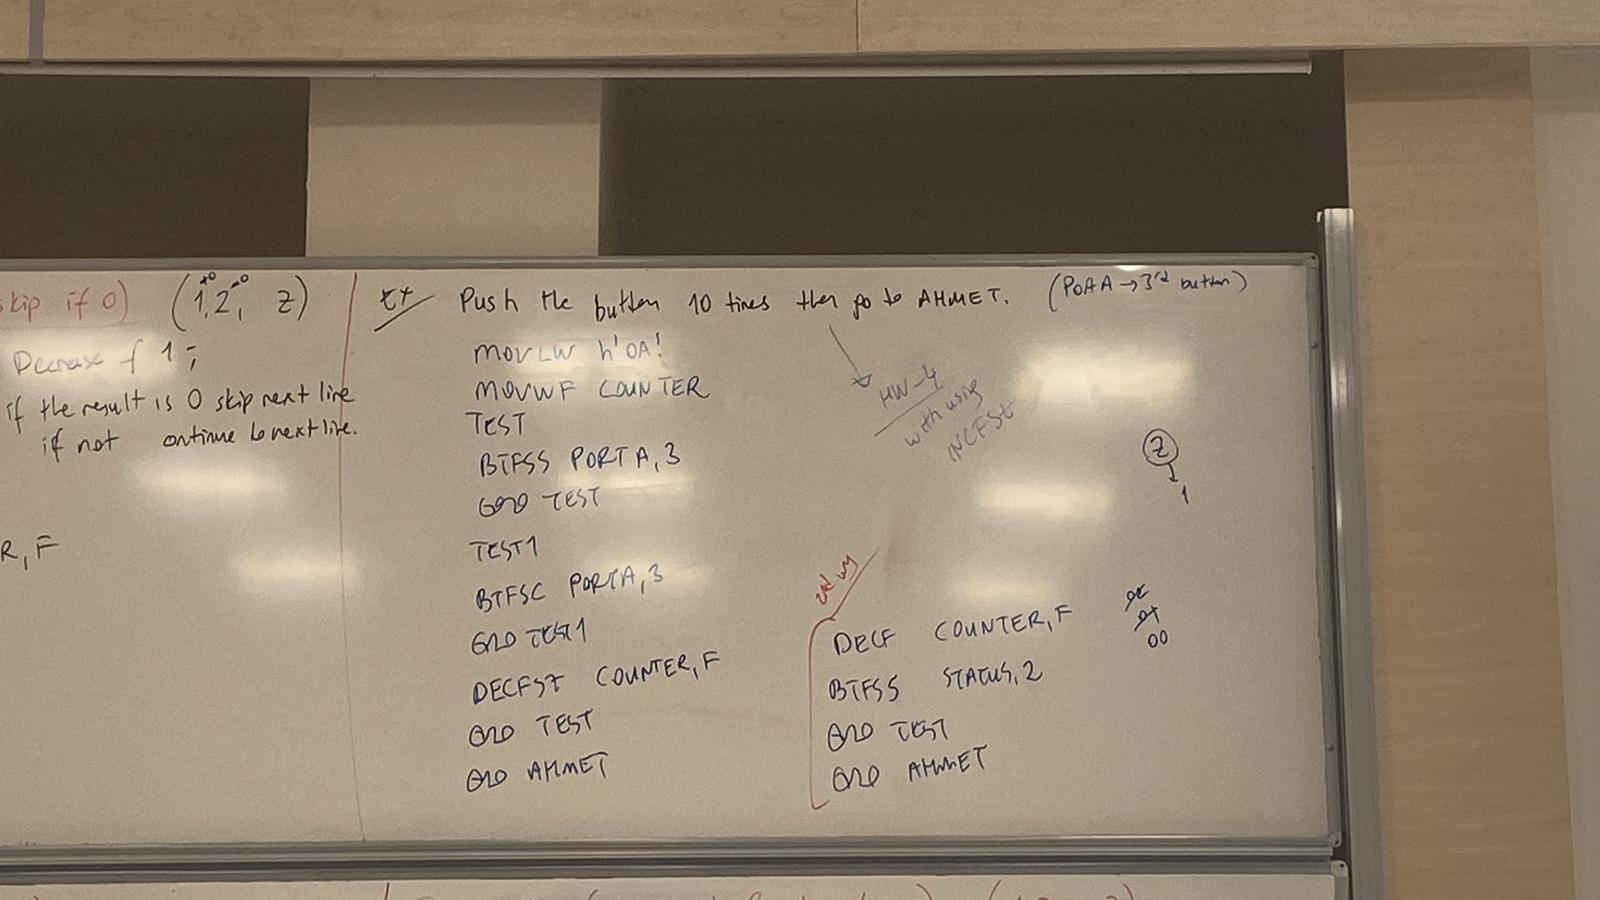 skip if 0) (1,2, Z)
Decrease f 1;
if the result is 0 skip next line
if not continue to next line.
R, F
Ex Push the button 10 times then go to AHMET. (PORA → 3rd button)
MOVLW h'0A'
MOVWF COUNTER
TEST
BTFSS PORTA,3
GOTO TEST
TEST1
BTFSC PORTA,3
GOTO TEST1
DECFSZ COUNTER,F
GOTO TEST
GOTO AHMET
HW-4
with using
INCFSZ
Z
1
2nd way
DECF COUNTER,F
BTFSS STATUS,2
GOTO TEST
GOTO AHMET
00